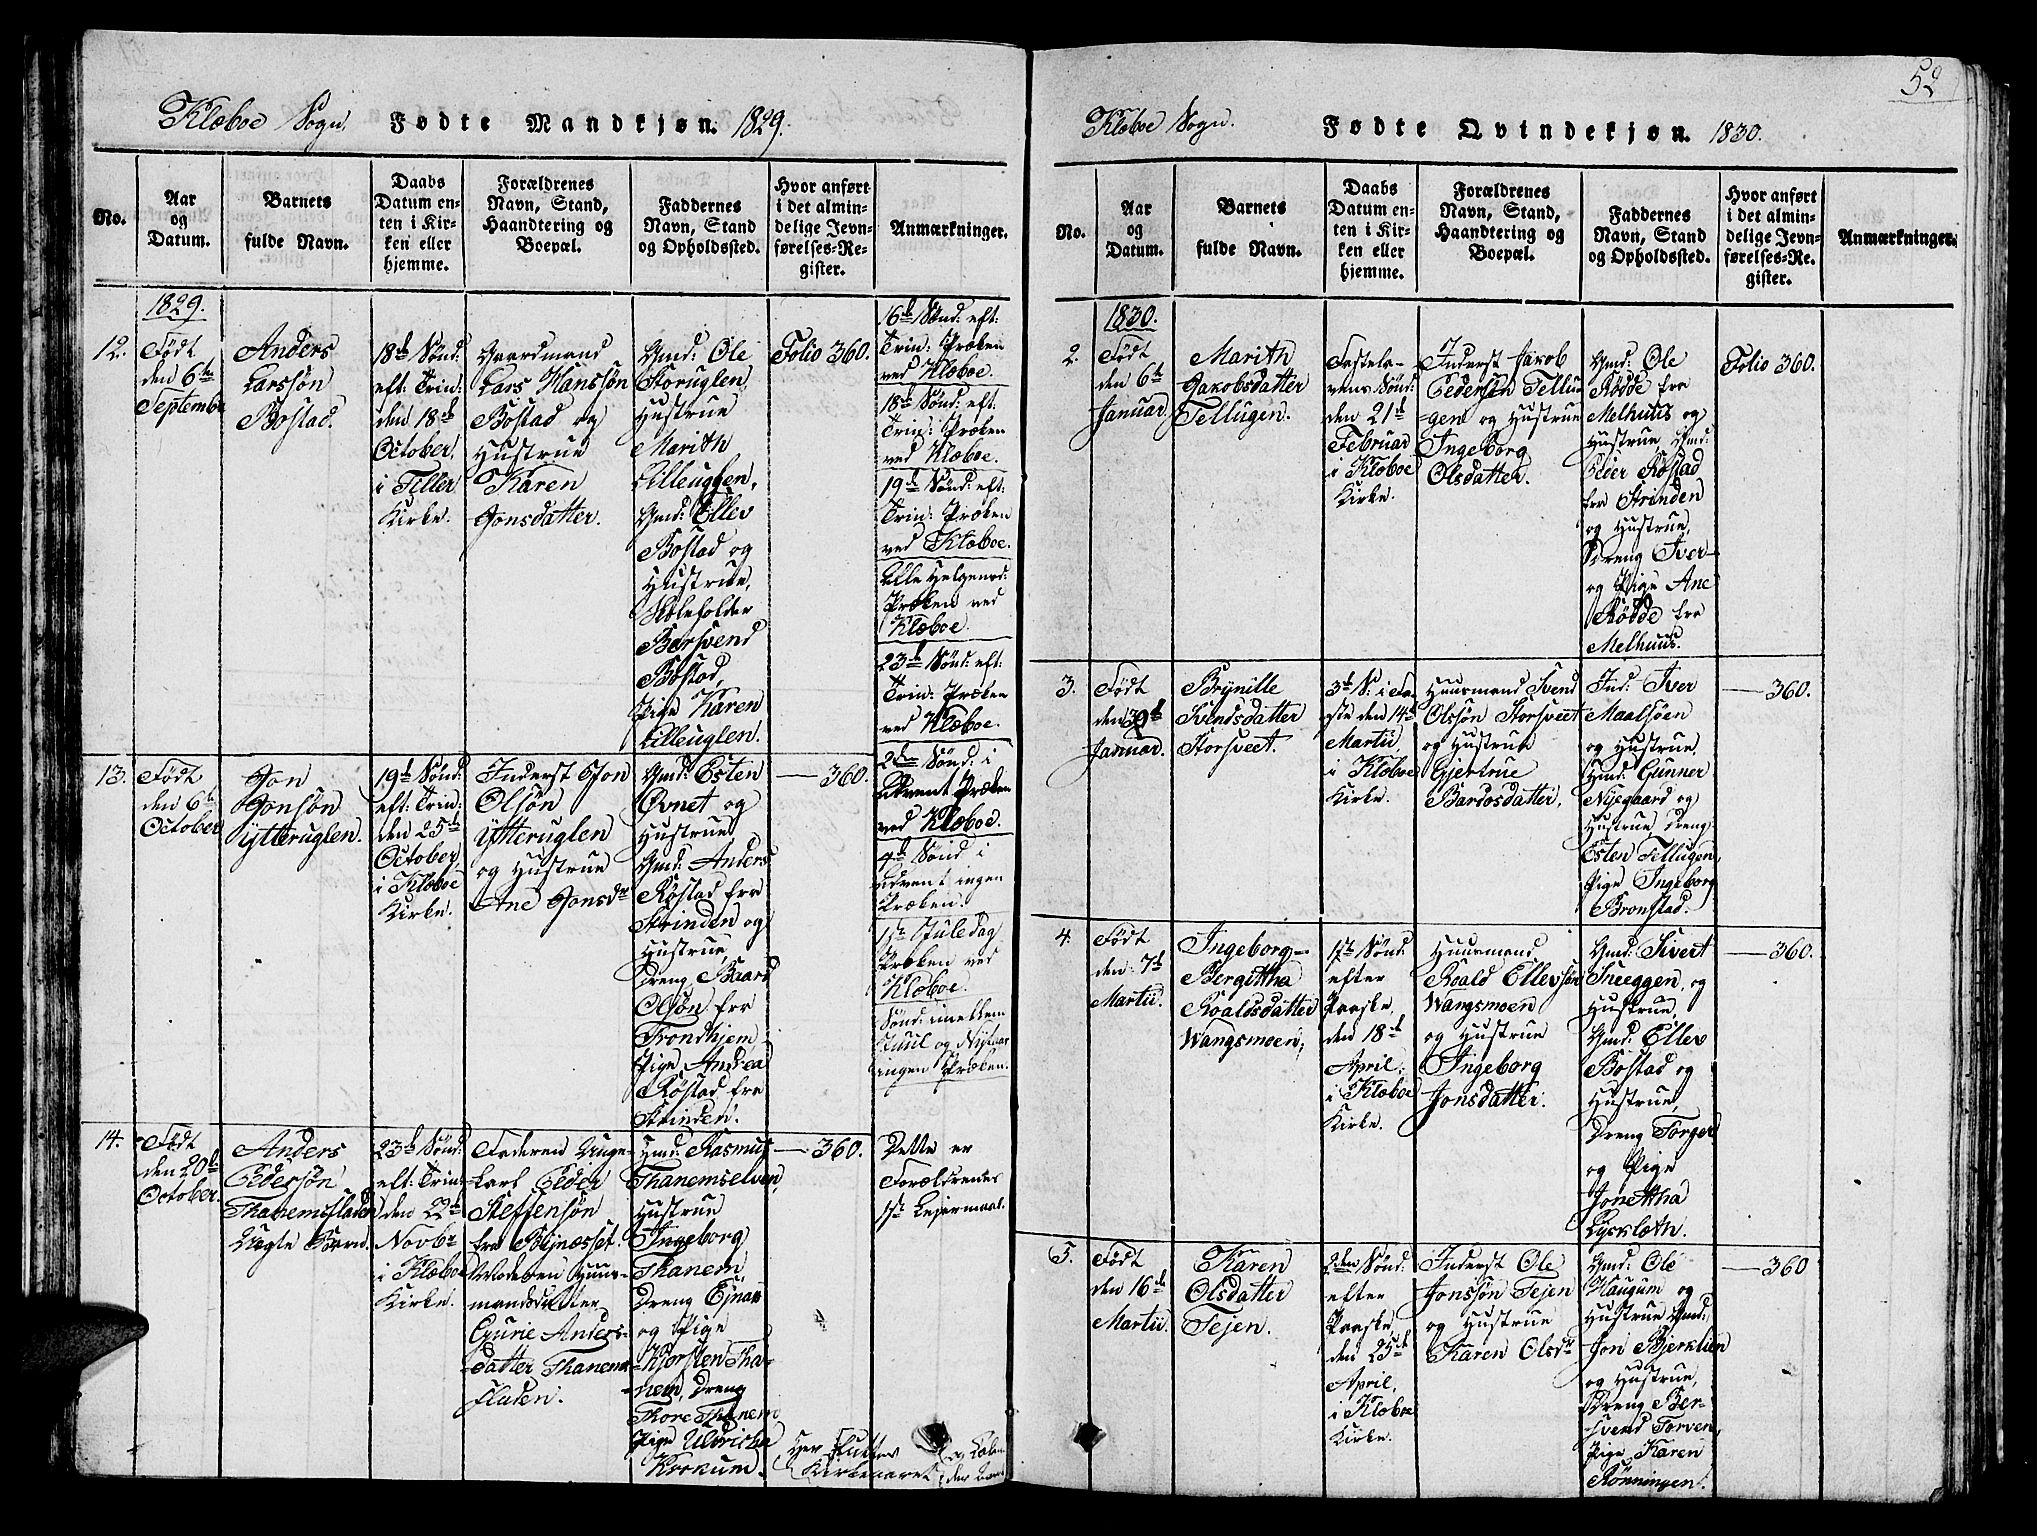 Klæboe Sogn. Fødte Mandkjøn. 1829.
No.
Aar
og
Datum.
Barnets
fulde Navn.
Daabs
Datum en-
ten i Kir-
ken eller
hjemme.
Forældrenes
Navn, Stand,
Haandtering og
Boepæl.
Faddernes
Navn, Stand
og Opholdssted.
Hvor anført
i det almin-
delige Jevn-
førelses-Re-
gister.
Anmærkninger.
1829.
12.
Født
den 6te
September
Anders
Larssøn
Bostad.
18d Sønd:
eft: Trin:
den 18d
October,
i Tiller
Kirke.
Gaardmand
Lars Hanssøn
Bostad og
Hustrue
Karen
Jonsdatter.
Gmd: Ole
Storuglen,
Hustrue
Marith
Lilleuglen,
Gmd: Ellev
Bostad og
Hustrue,
Skoleholder
Bersvend
Bostad,
Pige Karen
Lilleuglen.
Folio 360.
16d Sønd: eft:
Trin: Præken
ved Klæboe.
18d Sønd: eft:
Trin: Præken
ved Klæboe.
19d Sønd: eft:
Trin: Præken
ved Klæboe.
Alle Helgensd:
Præken ved
Klæboe.
23d Sønd: eft:
Trin: Præken
ved Klæboe.
2den Sønd: i
Advent Præken
ved Klæboe.
4d Sønd i
Advent ingen
Præken.
1ste Juledag
Præken ved
Klæboe.
Sønd: imellem
Juul og Nytaar
ingen Præken.
13.
Født
den 6te
October
Jon
Jonsøn
Ytteruglen.
19d Sønd:
eft: Trin:
den 25de
October,
i Klæboe
Kirke.
Inderst Jon
Olsøn
Ytteruglen
og Hustrue
Ane Jonsdr
Gmd: Esten
Øvnet og
Hustrue,
Gmd: Anders
Røstad fra
Strinden og
Hustrue,
Dreng Baard
Olsøn fra
Trondhjem
Pige Andrea
Røstad fra
Strinden.
— 360.
14.
Født
den 20d
October.
Anders
Pedersøn
Thanemsfladen
Uægte Barn.
23d Sønd:
eft: Trin:
den 22d
Novbr
i Klæboe
Kirke.
Faderen Unge-
karl Peder
Steffensøn
fra Bynæsset.
Moderen Huus-
mandsdatter
Gurie Anders-
datter Thanems
fladen.
Hmd: Rasmus
Thanemselven,
Hustrue
Ingeborg
Thanem,
Dreng Ejnar
og Pige
Kjersten Tha-
nem, Dreng
Thore Thanem
Pige Ulvricha
Krokum.
— 360.
Dette er
Forældrenes
1ste Leiermaal.
Her sluttes
Kirkeaaret
52
Klæboe Sogn. Fødte Qvindekjøn. 1830.
No.
Aar
og
Datum.
Barnets
fulde Navn.
Daabs
Datum en-
ten i Kir-
ken eller
hjemme.
Forældrenes
Navn, Stand,
Haandtering og
Boepæl.
Faddernes
Navn, Stand
og Opholdssted.
Hvor anført
i det almin-
delige Jevn-
førelses-Re-
gister.
Anmærkninger.
1830.
2.
Født
den 6te
Januar.
Marith
Jakobsdatter
Tellugen.
Fastela-
vens Sønd:
den 21d
Februar
i Klæboe
Kirke.
Inderst Jakob
Pedersen Tellu-
gen og Hustrue
Ingeborg
Olsdatter.
Gmd: Ole
Rødde fra
Melhuus og
Hustrue, Gmd:
Peder Røstad
fra Strinden
og Hustrue,
Dreng Iver
og Pige Ane
Rødde fra
Melhuus.
Folio 360.
3.
Født
Januar.
Brynille
Svendsdatter
Storsveet.
3d S: i Fa-
ste den 14d
Martii,
i Klæboe
Kirke.
Huusmand Svend
Olssøn Storsveet
og Hustrue
Gjertrue
Bardosdatter.
Ind: Iver
Maalsøen
og Hustrue,
Hmd: Gunner
Nyegaard og
Hustrue, Dreng
Esten Tellugen,
Pige Ingeborg
Bronstad.
— 360.
4.
Født
den 7d
Martii.
Ingeborg
Bergittha
Roaldsdatter
Wangsmoen,
1ste Sønd:
efter
Paaske,
den 18d
April,
i Klæboe
Kirke.
Huusmand
Roald Ellevsøn
Wangsmoen
og Hustrue
Ingeborg
Jonsdatter.
Gmd: Sivert
Sneeggen, og
Hustrue,
Gmd: Ellev
Bostad og
Hustrue,
Dreng Torger
og Pige
Jonettha
Lysklæth.
— 360.
5.
Født
den 16de
Martii.
Karen
Olsdatter
Tejen.
2den Sønd:
efter
Paaske,
den 25d
April,
i Klæboe
Kirke.
Inderst Ole
Jonssøn Tejen
og Hustrue
Karen Olsdr
Gmd: Ole
Haugum og
Hustrue Gmd:
Jon Bjerklien
og Hustrue,
Dreng Ber-
svend Torven
Pige Karen
Rønningen.
— 360